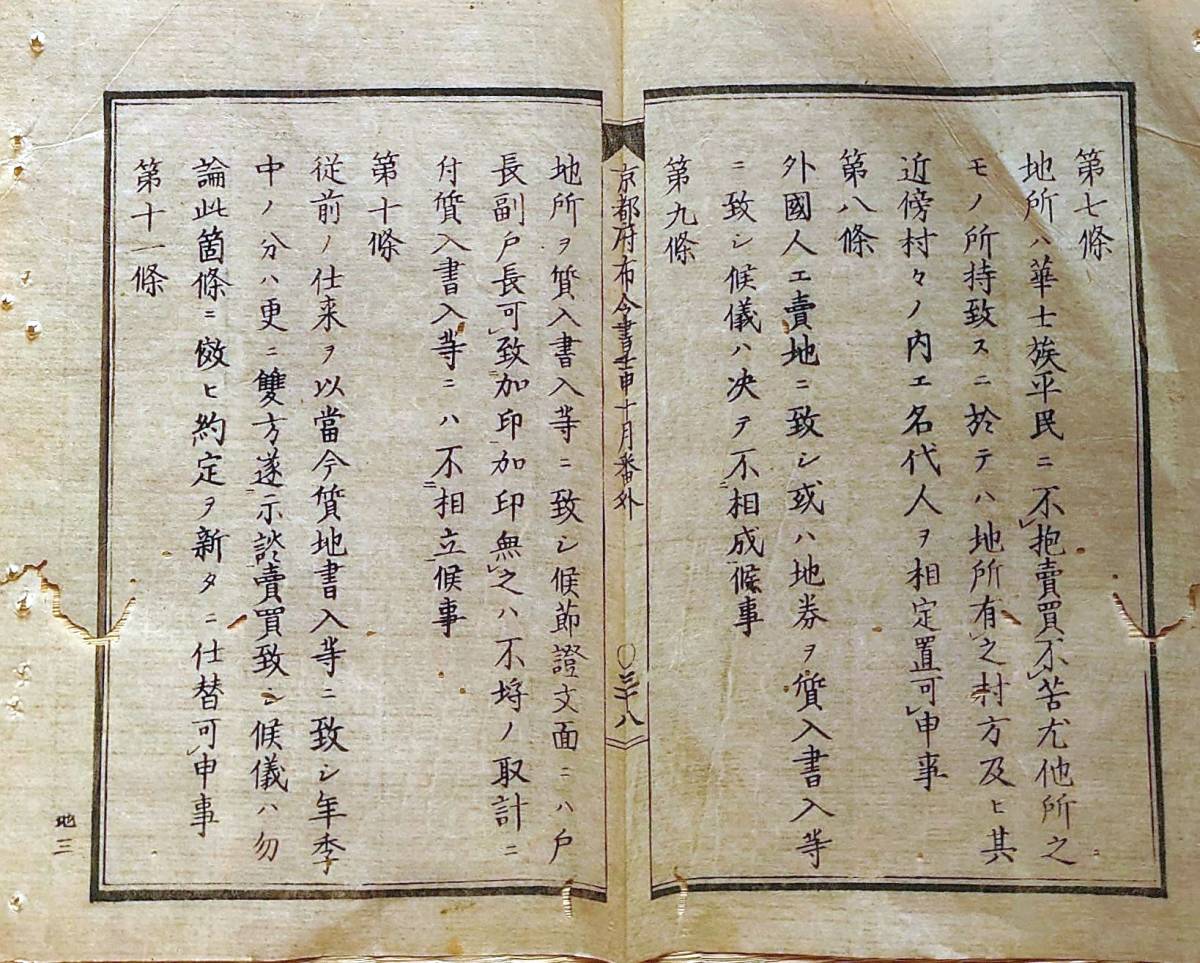 第七條
地所ハ華士族平民ニ不抱賣買不苦尤他所之
モノ所持致スニ於テハ地所有之村方及ヒ其
近傍村々ノ内エ名代人ヲ相定置可申事
第八條
外國人エ賣地ニ致シ或ハ地券ヲ質入書入等
ニ致シ候儀ハ决テ不相成候事
第九條
京都府布令書壬申十月番外
〇三十八
地所ヲ質入書入等ニ致シ候節證文面ニハ戸
長副戸長可致加印加印無之ハ不埒ノ取計ニ
付質入書入等ニハ不相立候事
第十條
従前ノ仕来ヲ以當今質地書入等ニ致シ年季
中ノ分ハ更ニ雙方遂示談賣買致シ候儀ハ勿
論此箇條ニ傚ヒ約定ヲ新タニ仕替可申事
第十一條
地三